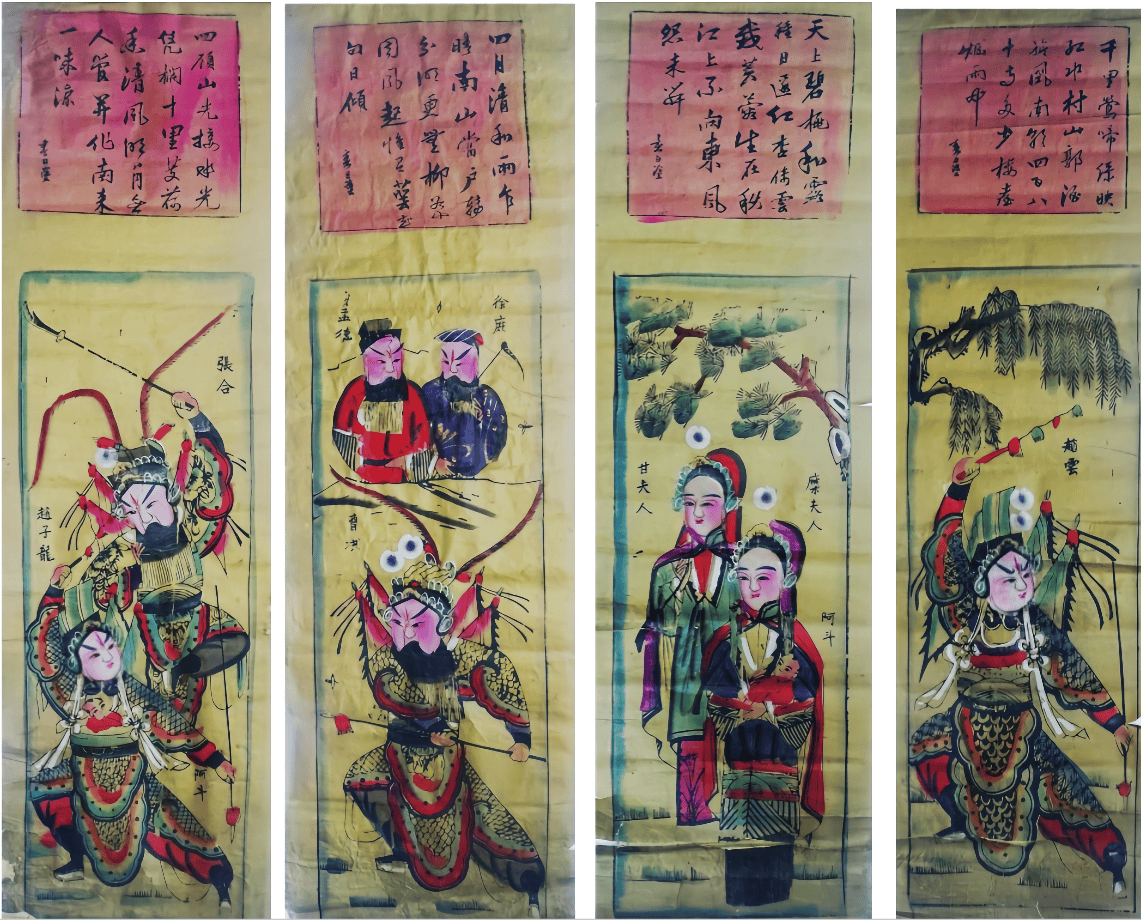 千里鶯啼綠映
紅水村山郭酒
旗風南朝四百八
十寺多少楼臺
烟雨中
趙雲
天上碧桃和露
種日邊紅杏倚雲
栽芙蓉生在秋
江上不向東風
怨未开
糜夫人
甘夫人
阿斗
四月清和雨乍
晴南山當户轉
分明更無柳絮
因風起惟有葵花
向日傾
徐庶
孟德
曹洪
四顧山光接水光
凭欄十里芰荷
香清風明月無
人管并作南来
一味凉
張合
趙子龍
阿斗